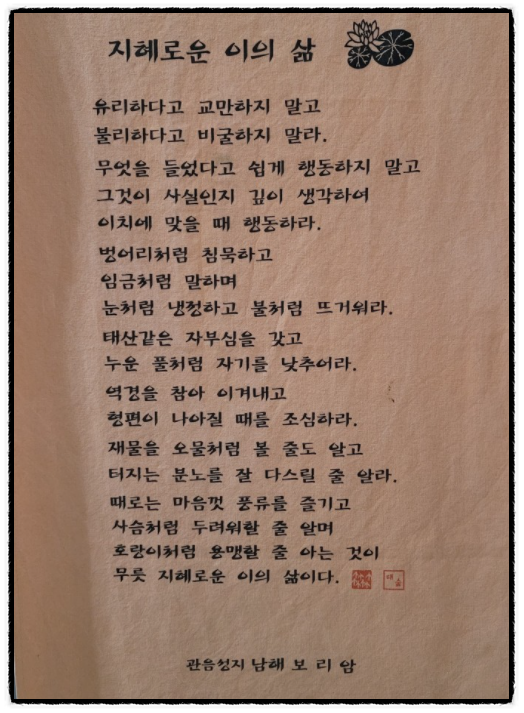 지혜로운 이의 삶
유리하다고 교만하지 말고
불리하다고 비굴하지 말라.
무엇을 들었다고 쉽게 행동하지 말고
그것이 사실인지 깊이 생각하여
이치에 맞을 때 행동하라.
벙어리처럼 침묵하고
임금처럼 말하며
눈처럼 냉정하고 불처럼 뜨거워라.
태산같은 자부심을 갖고
누운 풀처럼 자기를 낮추어라.
역경을 참아 이겨내고
형편이 나아질 때를 조심하라.
재물을 오물처럼 볼 줄도 알고
터지는 분노를 잘 다스릴 줄 알라.
때로는 마음껏 풍류를 즐기고
사슴처럼 두려워할 줄 알며
호랑이처럼 용맹할 줄 아는 것이
무릇 지혜로운 이의 삶이다.
관음성지 남해 보리암